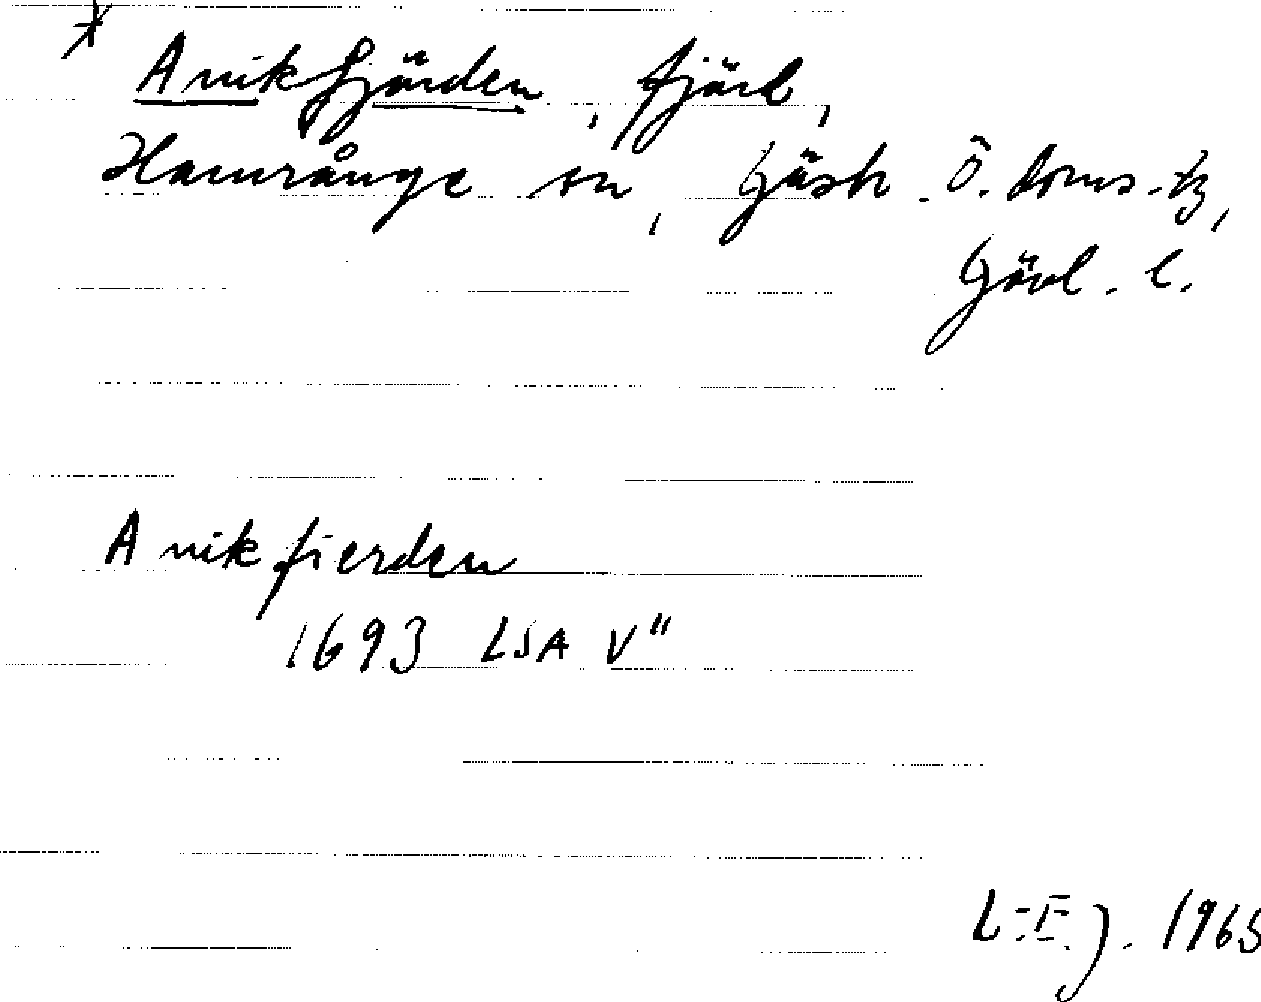 *
Anikfjärden, fjärd,
Hamrånge sn, Gästr. Ö. doms.-tg,
Gävl. l.
Anikfierden
1693 LSA V"
L-E J. 1965